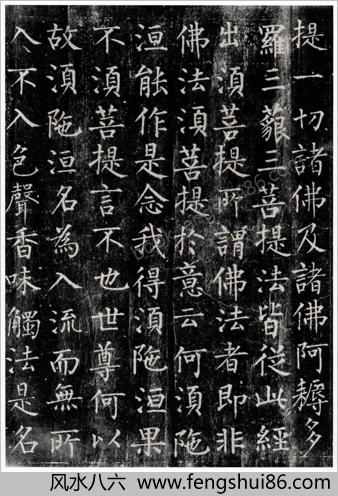 提一切諸佛及諸佛阿耨多
羅三藐三菩提法皆從此經
出須菩提所謂佛法者即非
佛法須菩提於意云何須陁
洹能作是念我得須陁洹果
不須菩提言不也世尊何以
故須陁洹名為入流而無所
入不入色聲香味觸法是名
风水八六 www.fengshui86.com